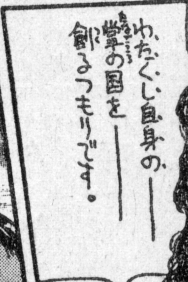 わたくし自身の――
掌の国を――
創るつもりです。